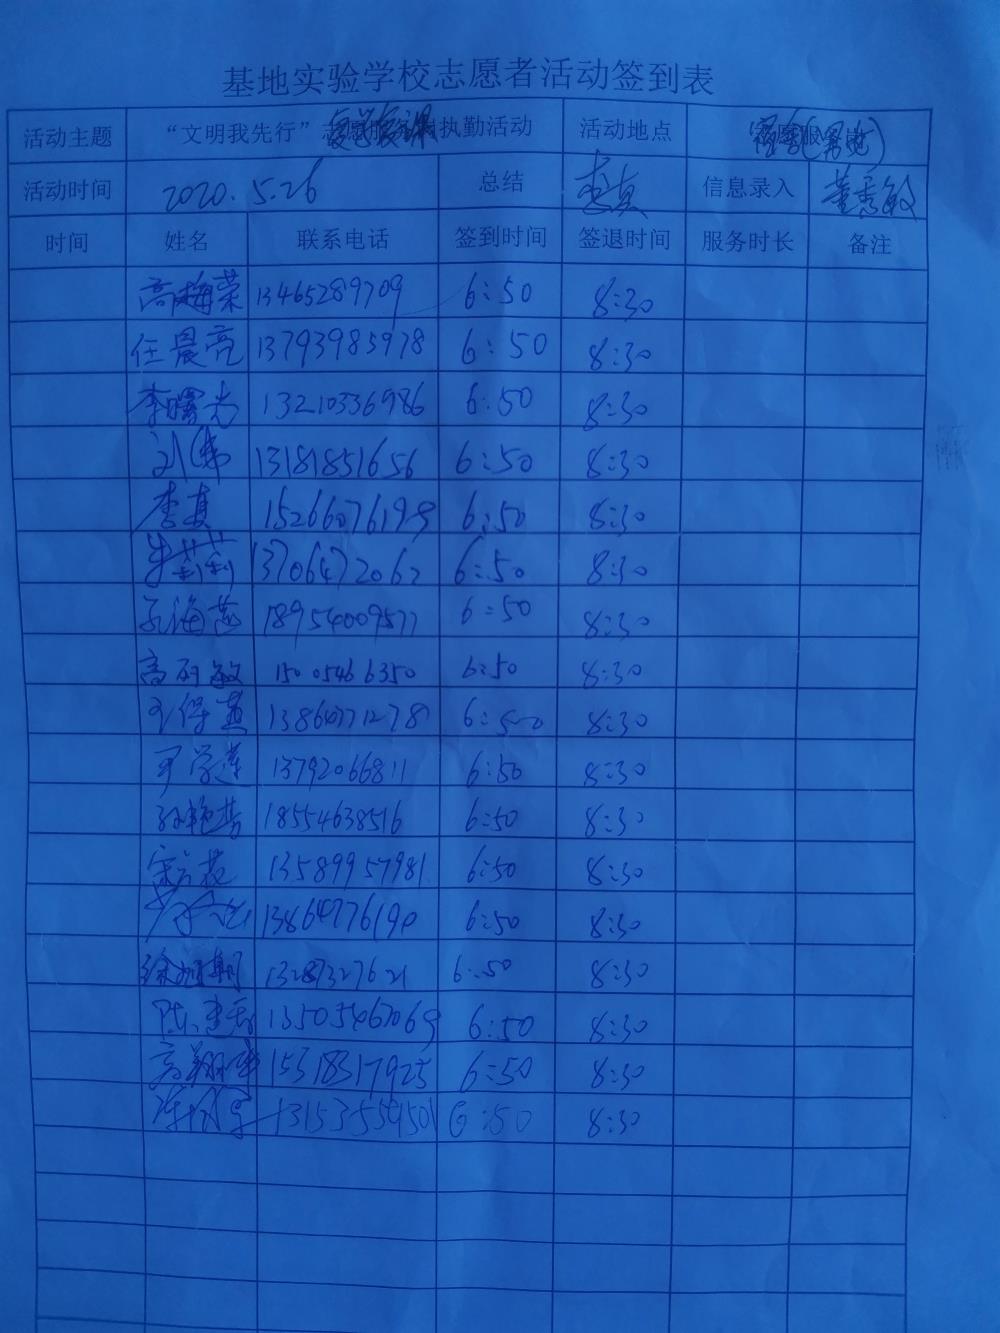 基地实验学校志愿者活动签到表
活动主题 “文明我先行” 执勤活动 活动地点
活动时间 2020.5.26 总结 李真 信息录入 董秀敏
时间 姓名 联系电话 签到时间 签退时间 服务时长 备注
高梅荣 13465289709 6:50 8:30
任晨亮 13793985978 6:50 8:30
李曙光 13210336986 6:50 8:30
刘伟 13181851656 6:50 8:30
李真 15266076199 6:50 8:30
牛莉莉 13706472062 6:50 8:30
海燕 18954009577 6:50 8:30
高砑敏 15005466350 6:50 8:30
13864771278 6:50 8:30
13792066811 6:50 8:30
孙艳芳 18554638516 6:50 8:30
宋立花 13589957981 6:50 8:30
13864776190 6:50 8:30
徐旭朝 13287327621 6:50 8:30
陈 13505467069 6:50 8:30
高翔 15318317925 6:50 8:30
6:50 8:30